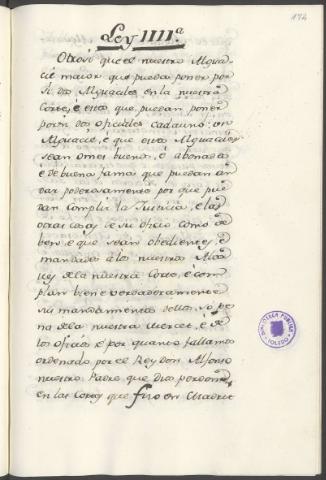 174
Ley IIII.ª
Otrosi que el nuestro Alguacil
maior que pueda poner por
si dos Alguaciles en la nuestra
Corte, è estos que puedan poner
por si dos oficiales cada uno un
Alguacil, è que estos Alguaciles
sean omes buenos, è abonados
è de buena fama que puedan an
dar poderosamente por que pue
dan complir la Justicia, è las
otras cosas de su oficio como de
ben è que sean obedientes, è
mandados à los nuestros Alcal
des de la nuestra Corte, è com
plan bien è verdaderamente
sus mandamientos dellos, so pe
na de la nuestra merced, è de
los oficios è por quanto fallamos
ordenado por el Rey don Alfonso
nuestro Padre que Dios perdone,
en las Cortes que fizo en Madrit
BIBLIOTECA PUBLICA
TOLEDO